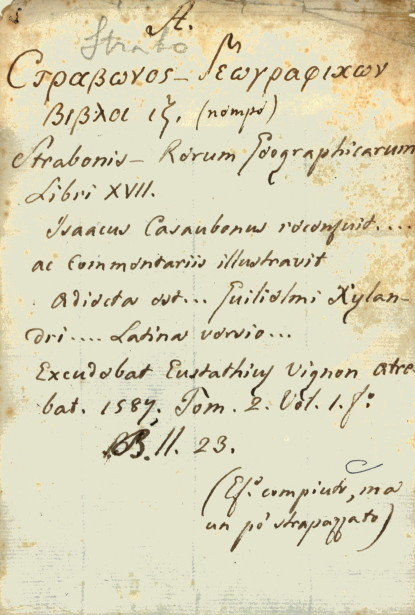 A.
Strabo
Στραβωνος – Γεωγραφικων
Βιβλοι ιζ. (nempe)
Strabonis – Rerum Geographicarum
Libri XVII.
Isaacus Casaubonus recensuit....
ac Commentariis illustravit
Adiecta est... Guilielmi Xylan-
dri.... Latina versio...
Excudebat Eustathius Vignon Atre-
bat. 1587. Tom. 2. Vol. 1. fº.
B. 11. 23.
(Es. compiuto, ma
un pò strapazzato)